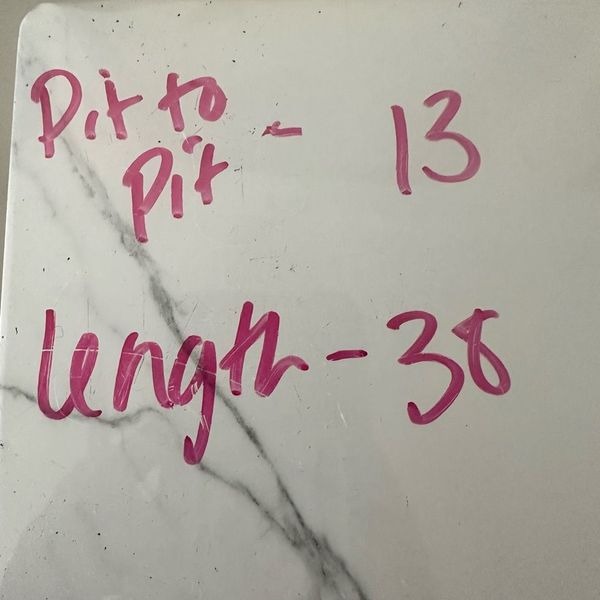 Pit to
Pit - 13
length - 38